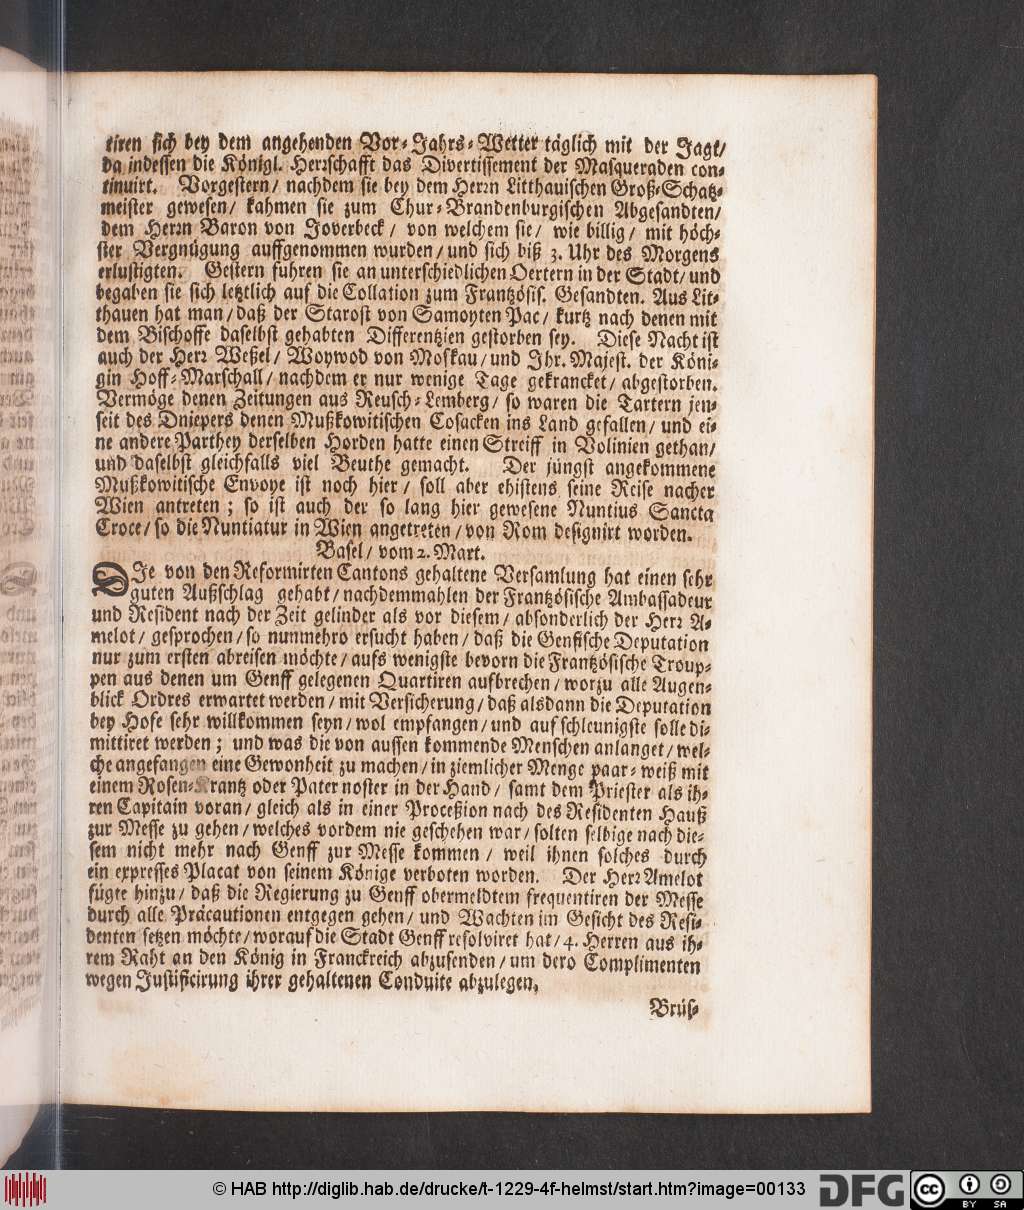 tiren sich bey dem angehenden Vor-Jahrs-Wetter täglich mit der Jagt/
da indessen die Königl. Herrschafft das Divertissement der Masqueraden con-
tinuirt. Vorgestern/ nachdem sie bey dem Herrn Litthauischen Groß-Schatz-
meister gewesen/ kahmen sie zum Chur-Brandenburgischen Abgesandten/
dem Herrn Baron von Joverbeck/ von welchem sie/ wie billig/ mit höch-
ster Vergnügung auffgenommen wurden/ und sich biß 3. Uhr des Morgens
erlustigten. Gestern fuhren sie an unterschiedlichen Oertern in der Stadt/ und
begaben sie sich letztlich auf die Collation zum Frantzösis. Gesandten. Aus Lit-
thauen hat man/ daß der Starost von Samoyten Pac/ kurtz nach denen mit
dem Bischoffe daselbst gehabten Differentzien gestorben sey. Diese Nacht ist
auch der Herr Weßel/ Woywod von Moskau/ und Ihr. Majest. der Köni-
gin Hoff-Marschall/ nachdem er nur wenige Tage gekrancket/ abgestorben.
Vermöge denen Zeitungen aus Reusch-Lemberg/ so waren die Tartern jen-
seit des Dniepers denen Mußkowitischen Cosacken ins Land gefallen/ und ei-
ne andere Parthey derselben Horden hatte einen Streiff in Volinien gethan/
und daselbst gleichfalls viel Beuthe gemacht. Der jüngst angekommene
Mußkowitische Envoye ist noch hier/ soll aber ehistens seine Reise nacher
Wien antreten; so ist auch der so lang hier gewesene Nuntius Sancta
Croce/ so die Nuntiatur in Wien angetreten/ von Rom designirt worden.
Basel/ vom 2. Mart.
DIe von den Reformirten Cantons gehaltene Versamlung hat einen sehr
guten Außschlag gehabt/ nachdemmahlen der Frantzösische Ambassadeur
und Resident nach der Zeit gelinder als vor diesem/ absonderlich der Herr A-
melot/ gesprochen/ so nunmehro ersucht haben/ daß die Genfische Deputation
nur zum ersten abreisen möchte/ aufs wenigste bevorn die Frantzösische Troup-
pen aus denen um Genff gelegenen Quartiren aufbrechen/ worzu alle Augen-
blick Ordres erwartet werden/ mit Versicherung/ daß alsdann die Deputation
bey Hofe sehr willkommen seyn/ wol empfangen/ und auf schleunigste solle di-
mittiret werden; und was die von aussen kommende Menschen anlanget/ wel-
che angefangen eine Gewonheit zu machen/ in ziemlicher Menge paar-weiß mit
einem Rosen-Krantz oder Pater noster in der Hand/ samt dem Priester als ih-
ren Capitain voran/ gleich als in einer Proceßion nach des Residenten Hauß
zur Messe zu gehen/ welches vordem nie geschehen war/ solten selbige nach die-
sem nicht mehr nach Genff zur Messe kommen/ weil ihnen solches durch
ein expresses Placat von seinem Könige verboten worden. Der Herr Amelot
fügte hinzu/ daß die Regierung zu Genff obermeldtem frequentiren der Messe
durch alle Präcautionen entgegen gehen/ und Wachten im Gesicht des Resi-
denten setzen möchte/ worauf die Stadt Genff resolviret hat/ 4. Herren aus ih-
rem Raht an den König in Franckreich abzusenden/ um dero Complimenten
wegen Justificirung ihrer gehaltenen Conduite abzulegen.
Brüs-
© HAB http://diglib.hab.de/drucke/t-1229-4f-helmst/start.htm?image=00133
DFG
cc BY SA